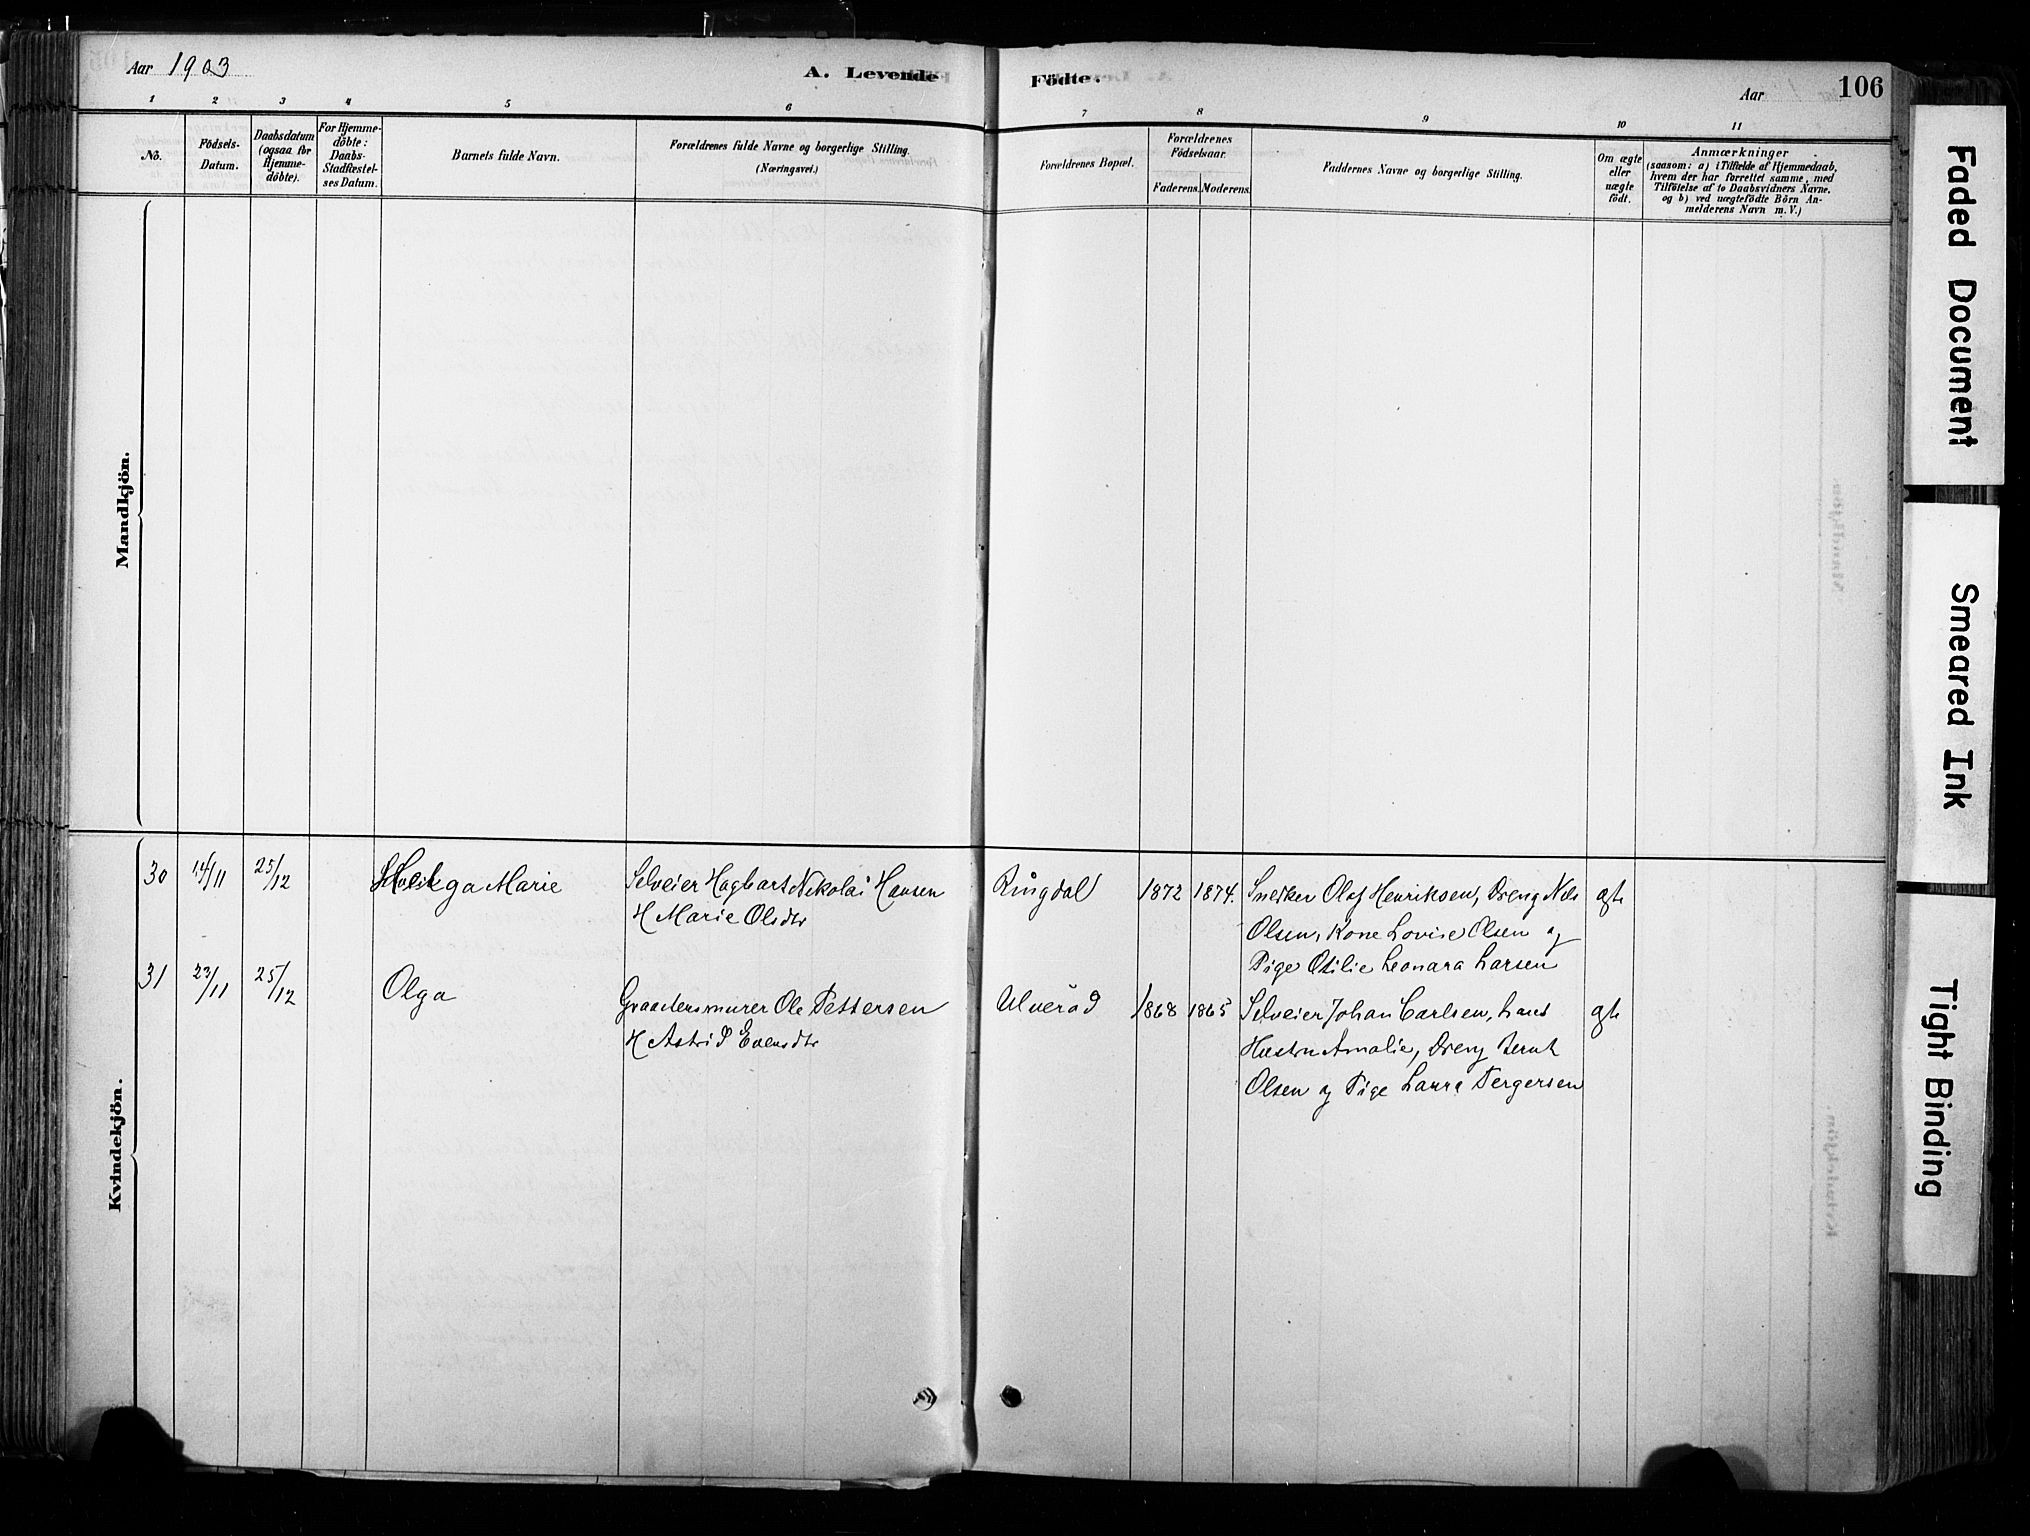 Aar 1903
A. Levende
Födte.
Aar
106
1 2 3 4 5 6 7 8 9 10 11
No.
Födsels-
Datum.
Daabsdatum
(ogsaa for
Hjemme-
döbte).
For Hjemme-
döbte:
Daabs-
Stadfæstel-
ses Datum.
Barnets fulde Navn.
Forældrenes fulde Navne og borgerlige Stilling.
(Næringsvei.)
Forældrenes Bopæl.
Forældrenes
Födselsaar.
Faderens. Moderens.
Faddernes Navne og borgerlige Stilling.
Om ægte
eller
uægte
födt.
Anmærkninger
(saasom: a) i Tilfælde af Hjemmedaab,
hvem der har forrettet samme, med
Tilföielse af to Daabsvidners Navne.
og b) ved uægtefödte Börn An-
melderens Navn m. V.)
Mandkjön.
Kvindekjön.
30 14/11 25/12 Helga Marie Selveier Hagbart Nikolai Hansen Ringdal 1872 1874. Snedker Olaf Henriksen, Dreng Nils ægte
H Marie Olsdtr
Olsen, Kone Lovise Olsen og
Pige Otilie Leonara Larsen
31 23/11 25/12 Olga Graastensmurer Ole Pettersen Ulverød 1868 1865 Selveier Johan Carlsen, hans ægte
H Astrid Evensdtr
Hustru Amalie, Dreng Bernt
Olsen og Pige Laura Tergersen
Faded Document
Smeared Ink
Tight Binding